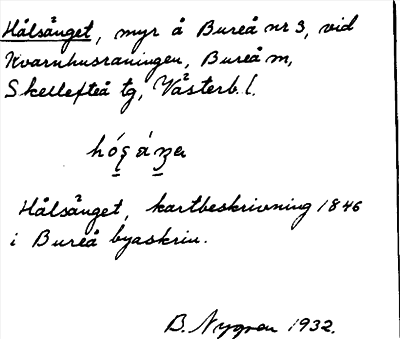 Hålsänget, myr å Bureå nr 3, vid
Kvarnhusraningen, Bureå m,
Skellefteå tg, Västerb. l.
Hålsänget, kartbeskrivning 1846
i Bureå byaskrin.
B. Nygren 1932.